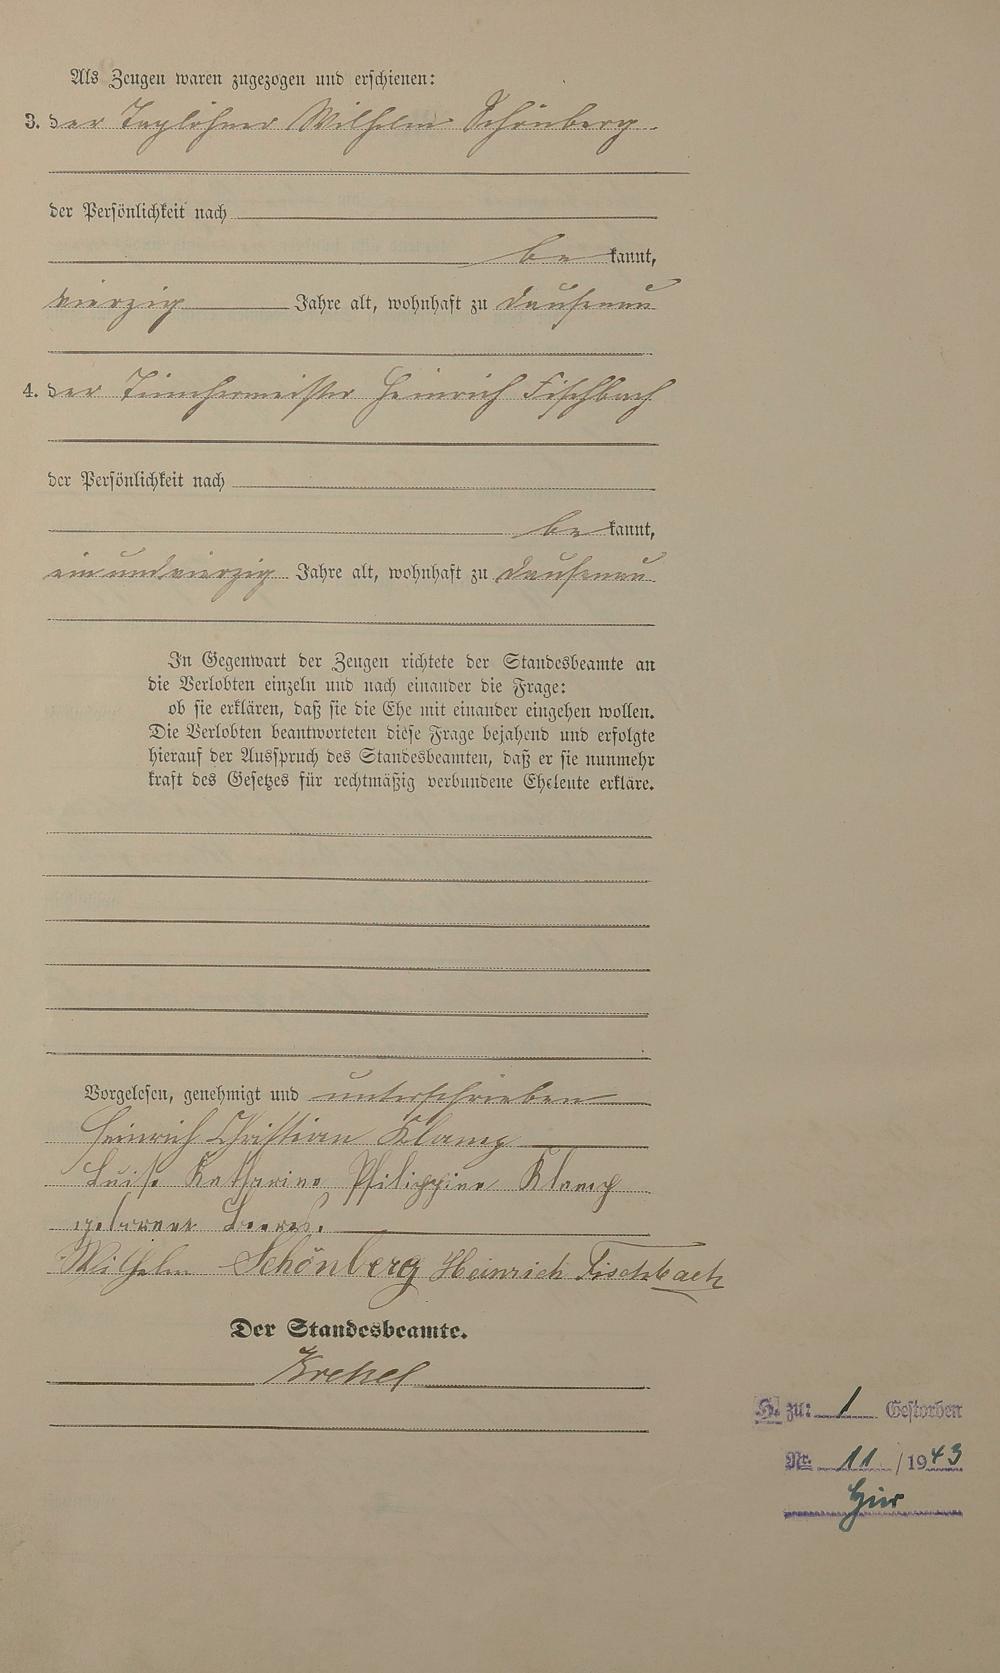 Als Zeugen waren zugezogen und erschienen:
3. der Taglöhner Wilhelm Schönberg
der Persönlichkeit nach
be kannt,
vierzig Jahre alt, wohnhaft zu Dausenau
4. der Tünchermeister Heinrich Fischbach
der Persönlichkeit nach
be kannt,
einundvierzig Jahre alt, wohnhaft zu Dausenau
In Gegenwart der Zeugen richtete der Standesbeamte an
die Verlobten einzeln und nach einander die Frage:
ob sie erklären, daß sie die Ehe mit einander eingehen wollen.
Die Verlobten beantworteten diese Frage bejahend und erfolgte
hierauf der Ausspruch des Standesbeamten, daß er sie nunmehr
kraft des Gesetzes für rechtmäßig verbundene Eheleute erkläre.
Vorgelesen, genehmigt und unterschrieben
Heinrich Christian Klamp
Luise Katharine Philippine Klamp
geborene
Wilhelm Schönberg Heinrich Fischbach
Der Standesbeamte.
Krekel
H. zu: 1 Gestorben
Nr. 11 / 1943
Hier